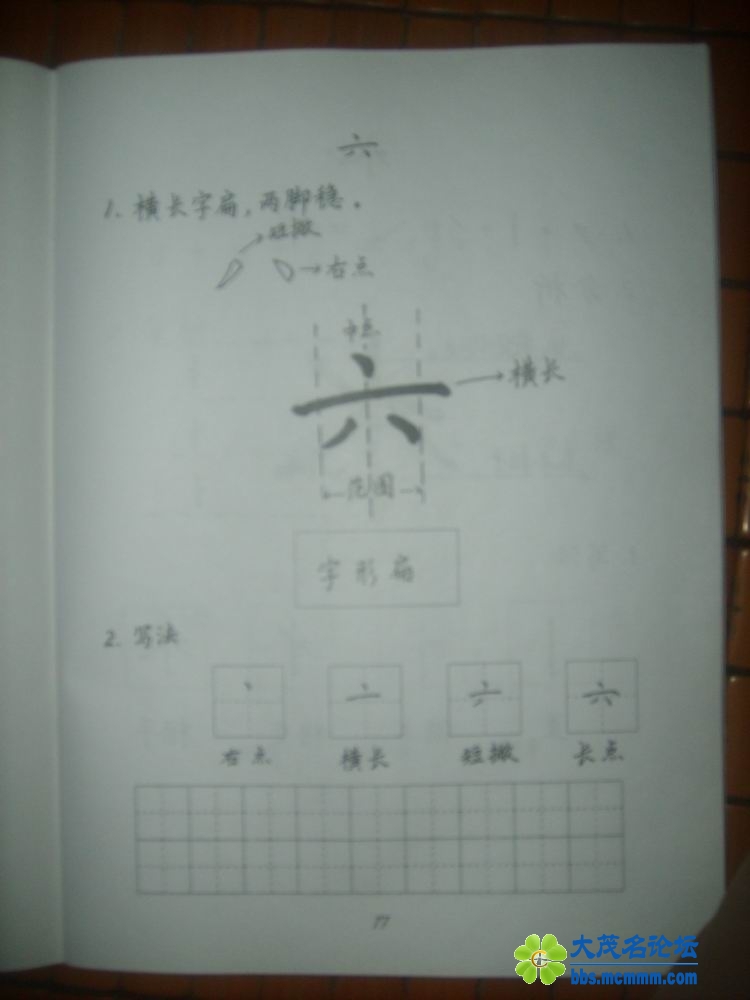 六
1. 横长字扁，两脚稳。
→短撇
→右点
中点
六
→横长
←范围→
字形扁
2. 写法
右点 横长 短撇 长点
77
大茂名论坛
bbs.mcmmm.com